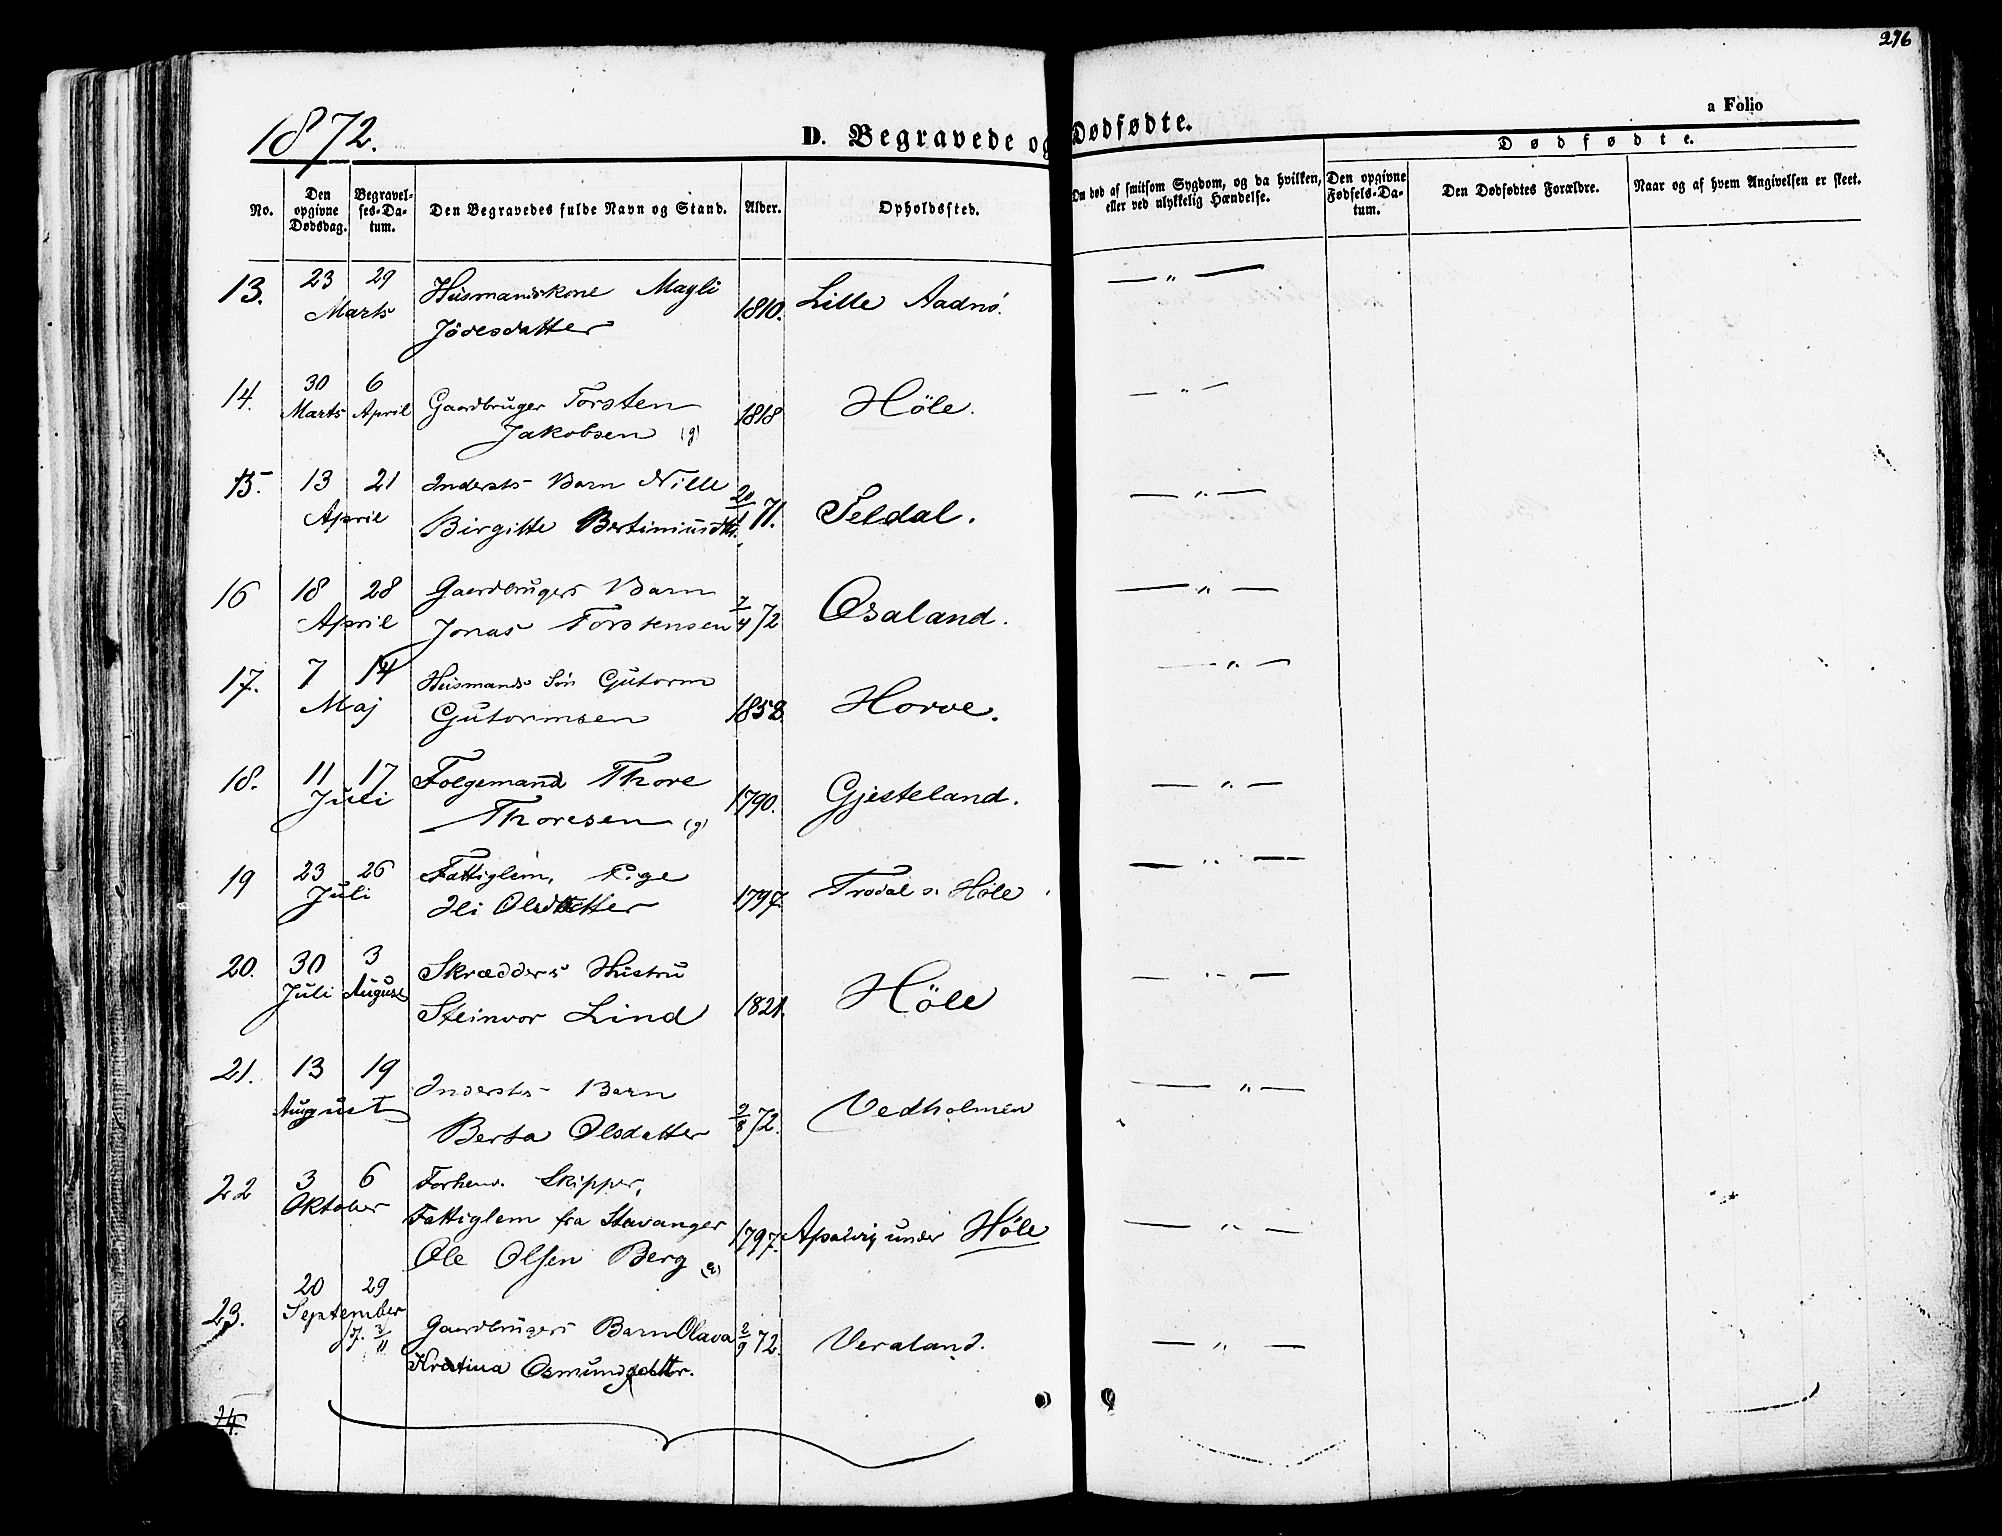 276
a Folio
1872.
D. Begravede og Dødfødte.
Dødfødte.
No.
Den opgivne Dødsdag.
Begravelses-Datum.
Den Begravedes fulde Navn og Stand.
Alder.
Opholdssted.
Om død af smitsom Sygdom, og da hvilken, eller ved ulykkelig Hændelse.
Den opgivne Fødsels-Datum.
Den Dødfødtes Forældre.
Naar og af hvem Angivelsen er skeet.
13. 23 29 Husmandskone Magli
Marts Jödesdatter 1810. Lille Aadnö. — " —
14. 30 6 Gaardbruger Torsten
Marts April Jakobsen (g) 1818 Höle. — " —
15. 13 21 Indersts Barn Nille
April Birgitte 71. Seldal. — " —
16 18 28 Gaardbrugers Barn
April Jonas Torstensen 7/4 72 Osaland. — " —
17. 7 14 Husmands Sön Gutorm
Maj Gutormsen 1858 Horve. — " —
18. 11 17 Folgemand Thore
Juli Thoresen (g) 1790. Gjesteland. — " —
19 23 26 Fattiglem, Pige
Juli Ili Olsdatter 1797. Trodal u. Höle — " —
20. 30 3 Skrædders Hustru
Juli August Steinvor Lind 1821. Höle — " —
21. 13 19 Indersts Barn
August Berta Olsdatter 9/8 72. Vedholmen — " —
22 3 6 Forhenv. Skipper,
Oktober Fattiglem fra Stavanger
Ole Olsen Berg 1797. Apalvig under Höle — " —
23. 20 29
September Gaardbrugers Barn Olava 2/9 72. Veraland. — " —
J. 3/11 Kristina Osmundsdatter.
24.